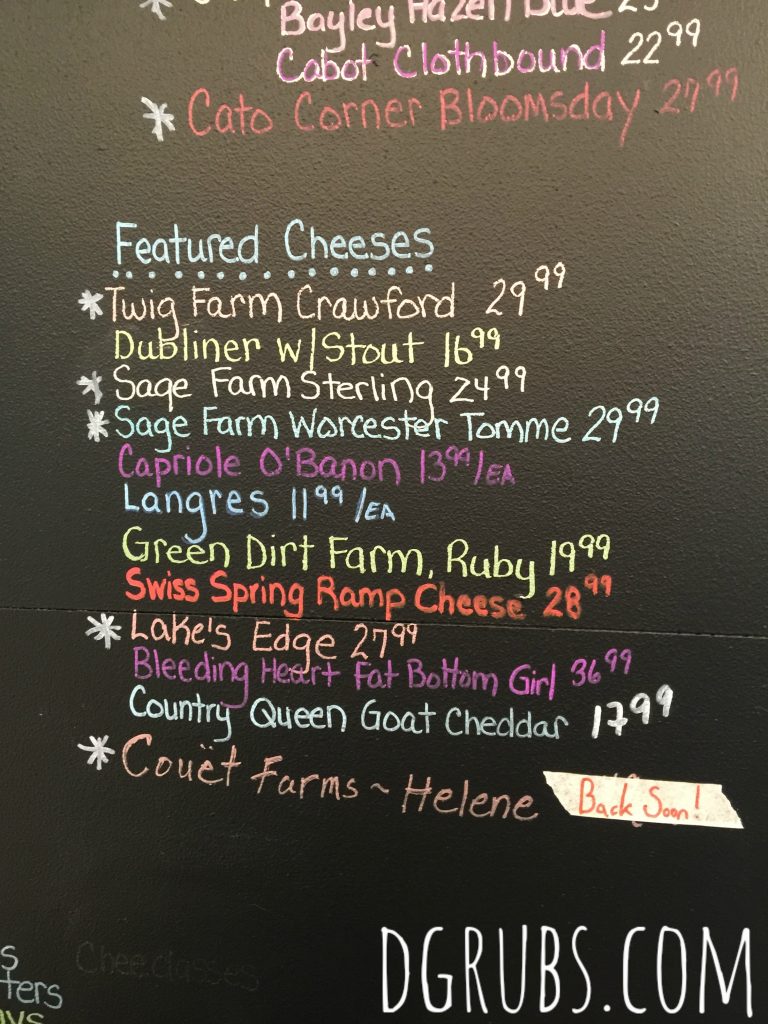 * Bayley Hazen Blue
Cabot Clothbound 22⁹⁹
* Cato Corner Bloomsday 27⁹⁹
Featured Cheeses
* Twig Farm Crawford 29⁹⁹
Dubliner w/Stout 16⁹⁹
* Sage Farm Sterling 24⁹⁹
* Sage Farm Worcester Tomme 29⁹⁹
Capriole O'Banon 13⁹⁹/EA
Langres 11⁹⁹/EA
Green Dirt Farm, Ruby 19⁹⁹
Swiss Spring Ramp Cheese 28⁹⁹
* Lake's Edge 27⁹⁹
Bleeding Heart Fat Bottom Girl 36⁹⁹
Country Queen Goat Cheddar 17⁹⁹
* Couët Farms ~ Helene Back Soon!
DGRUBS.COM